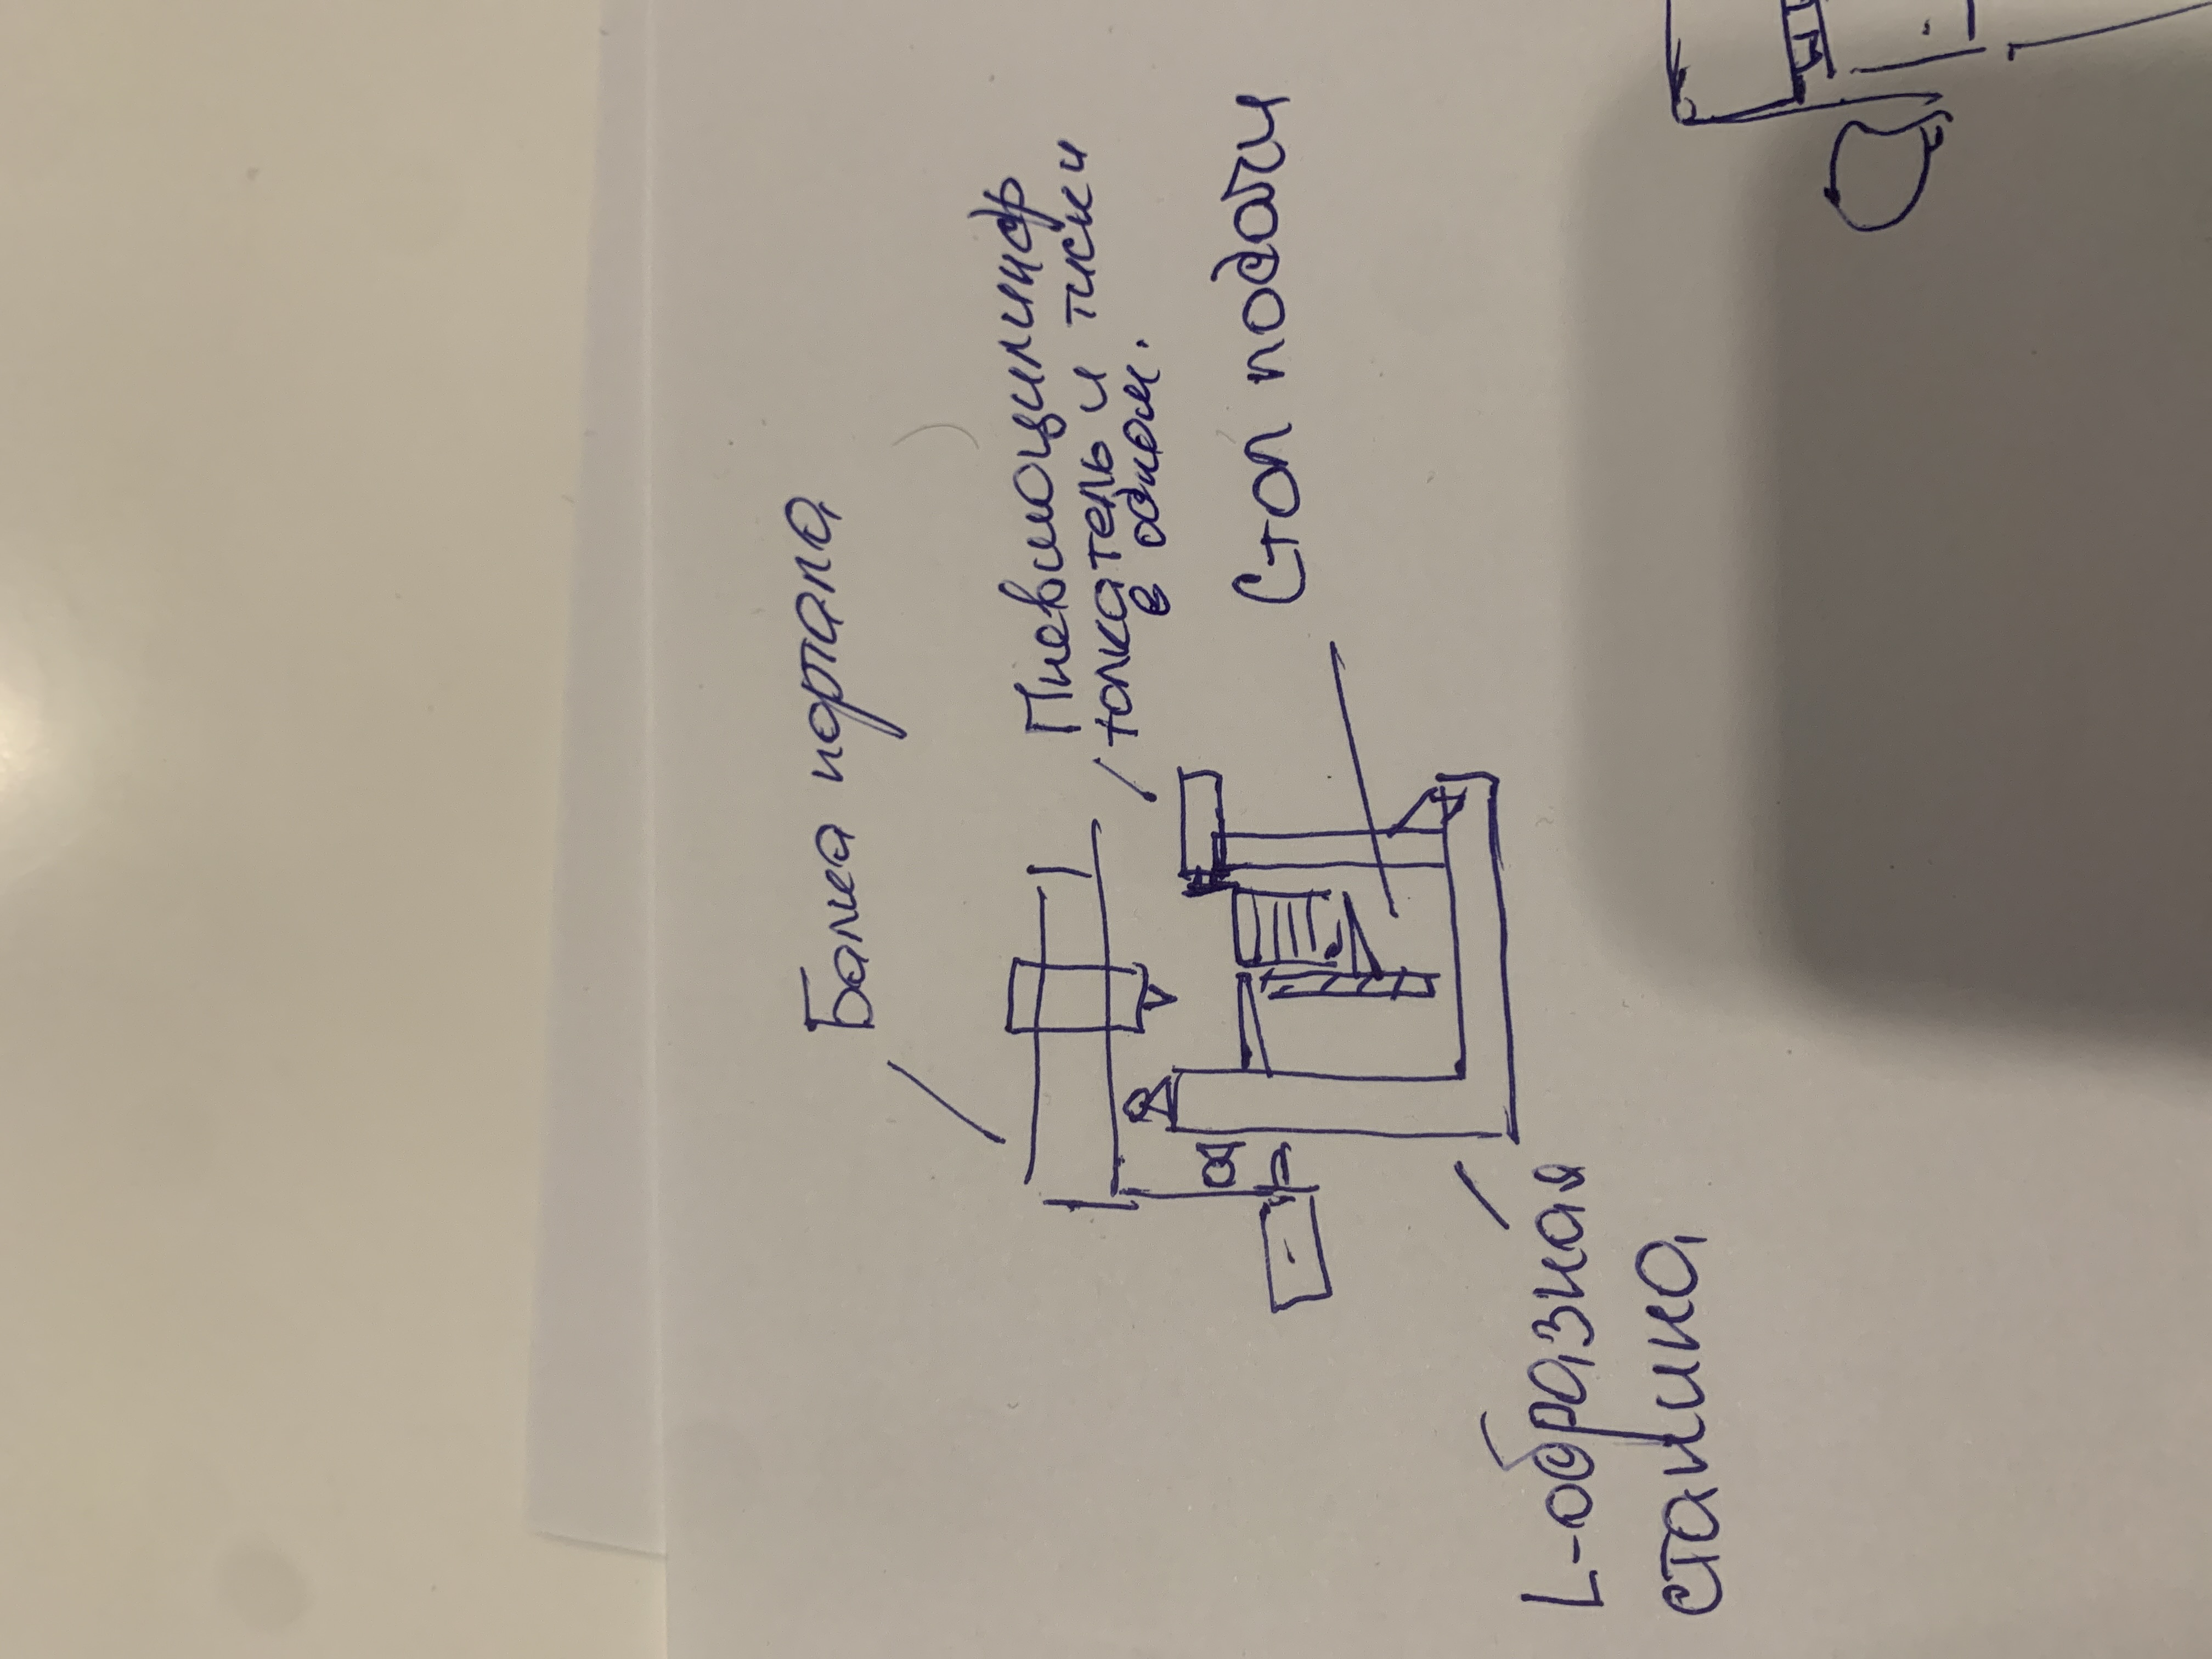 Балка портала
Пневмоцилиндр
толкатель и тиски
в одном.
Стол подачи
L-образная
станина